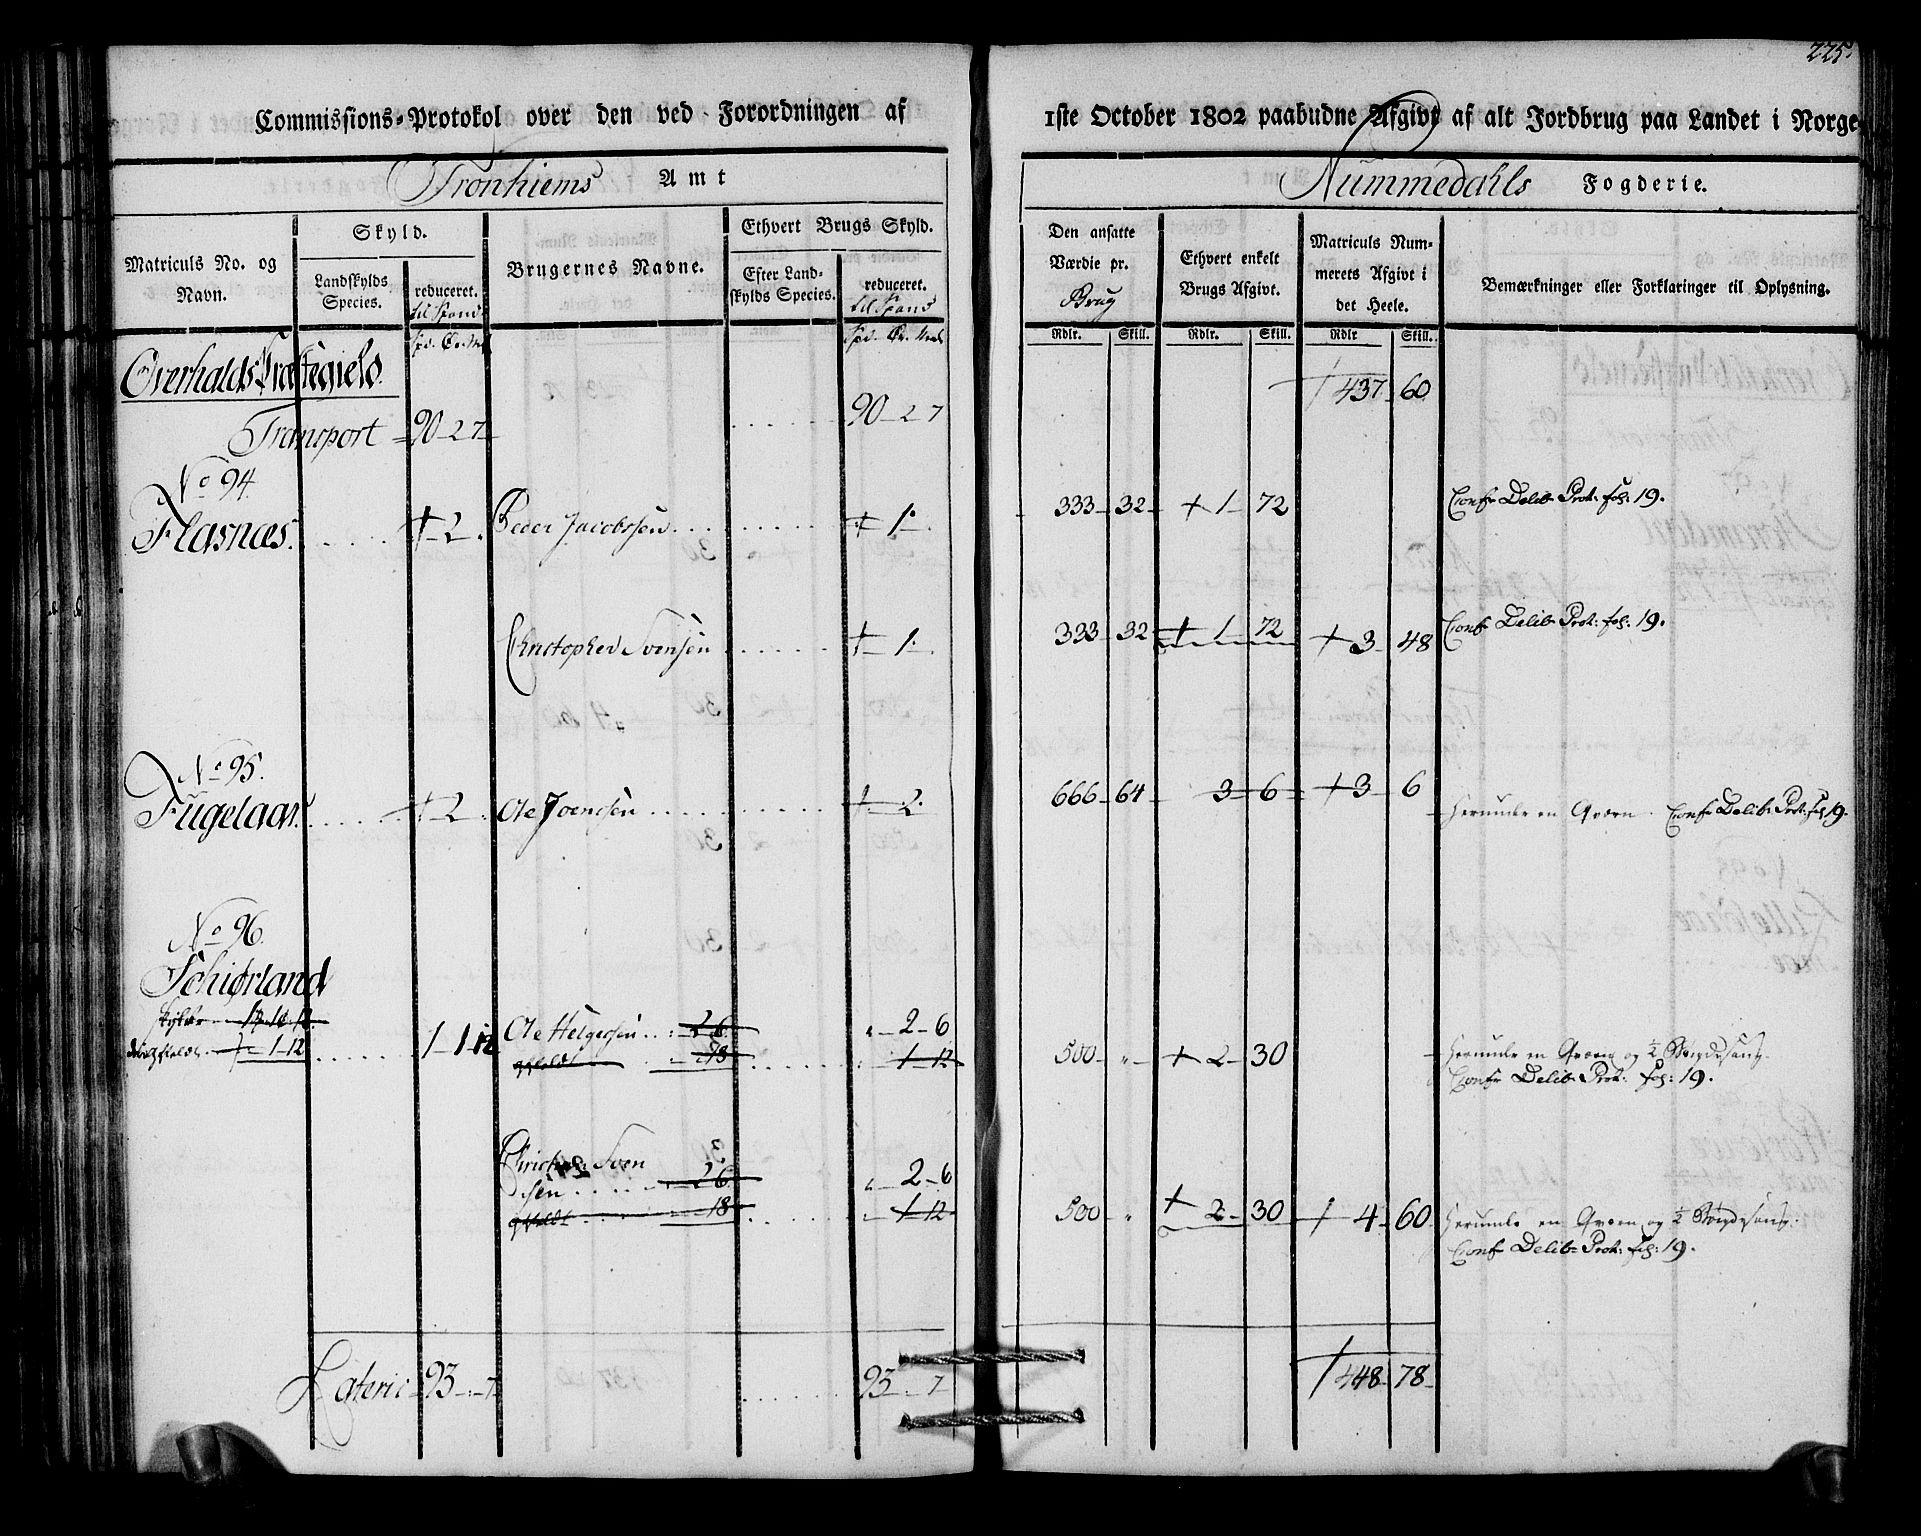 225.
Commissions-Protokol over den ved Forordningen af 1ste October 1802 paabudne Afgivt af alt Jordbrug paa Landet i Norge
Tronhiems Amt
Nummedahls Fogderie.
Matriculs No. og Navn.
Skyld.
Landskylds Species.
reduceret.
til Spand
Spd. Ør. Mrk
Brugernes Navne.
Ethvert Brugs Skyld.
Efter Landskylds Species.
reduceret.
til Spand
Spd. Ør. Mrk
Den ansatte Værdie pr. Brug
Rdlr. Skill.
Ethvert enkelt Brugs Afgivt.
Rdlr. Skill.
Matriculs Nummerets Afgivt i det Heele.
Rdlr Skill.
Bemærkninger eller Forklaringer til Oplysning.
Overhalds Præstegield.
Transport 90 - 2 7 90 - 2 7 437 60
No 94.
Flasnæs. 2. Peder Jacobssen 1. 333 32 1 72 Conf Delib Prot: fol: 19.
Christopher Svensen 1. 333 32 1 72 3 48 Conf Delib Prot: fol: 19.
No 95.
Fugelaas. 2. Ole Joensen 2. 666 64 3 6 3 6 Herunder en Qværn. Conf Delib Prot: fol 19.
No 96.
Schiørland
1 - 1 12 Ole Helgessen 2 6 2 - 6
1 - 12 18 1 - 12 500 " 2 30 Herunder en Qværn og ½ Bøgdesaug.
Conf Delib Prot: fol: 19.
Svensen 2 6 2 - 6
18 1 - 12 500 " 2 30 4 60 Herunder en Qværn og ½ Bøgdesaug.
Conf Delib Prot: fol: 19.
Lateris 93 - 7 93 - 7 448 78